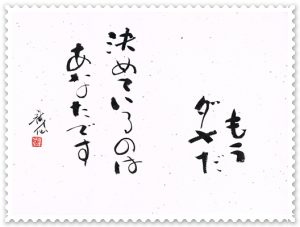 もう
ダメだ
決めているのは
あなたです